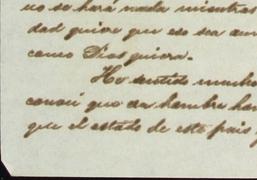 no se hará nada mientras
dad quiere que eso sea aun
como Dios quiera.
He sentido mucho
conocí que era hombre hon
que el estado de este pais